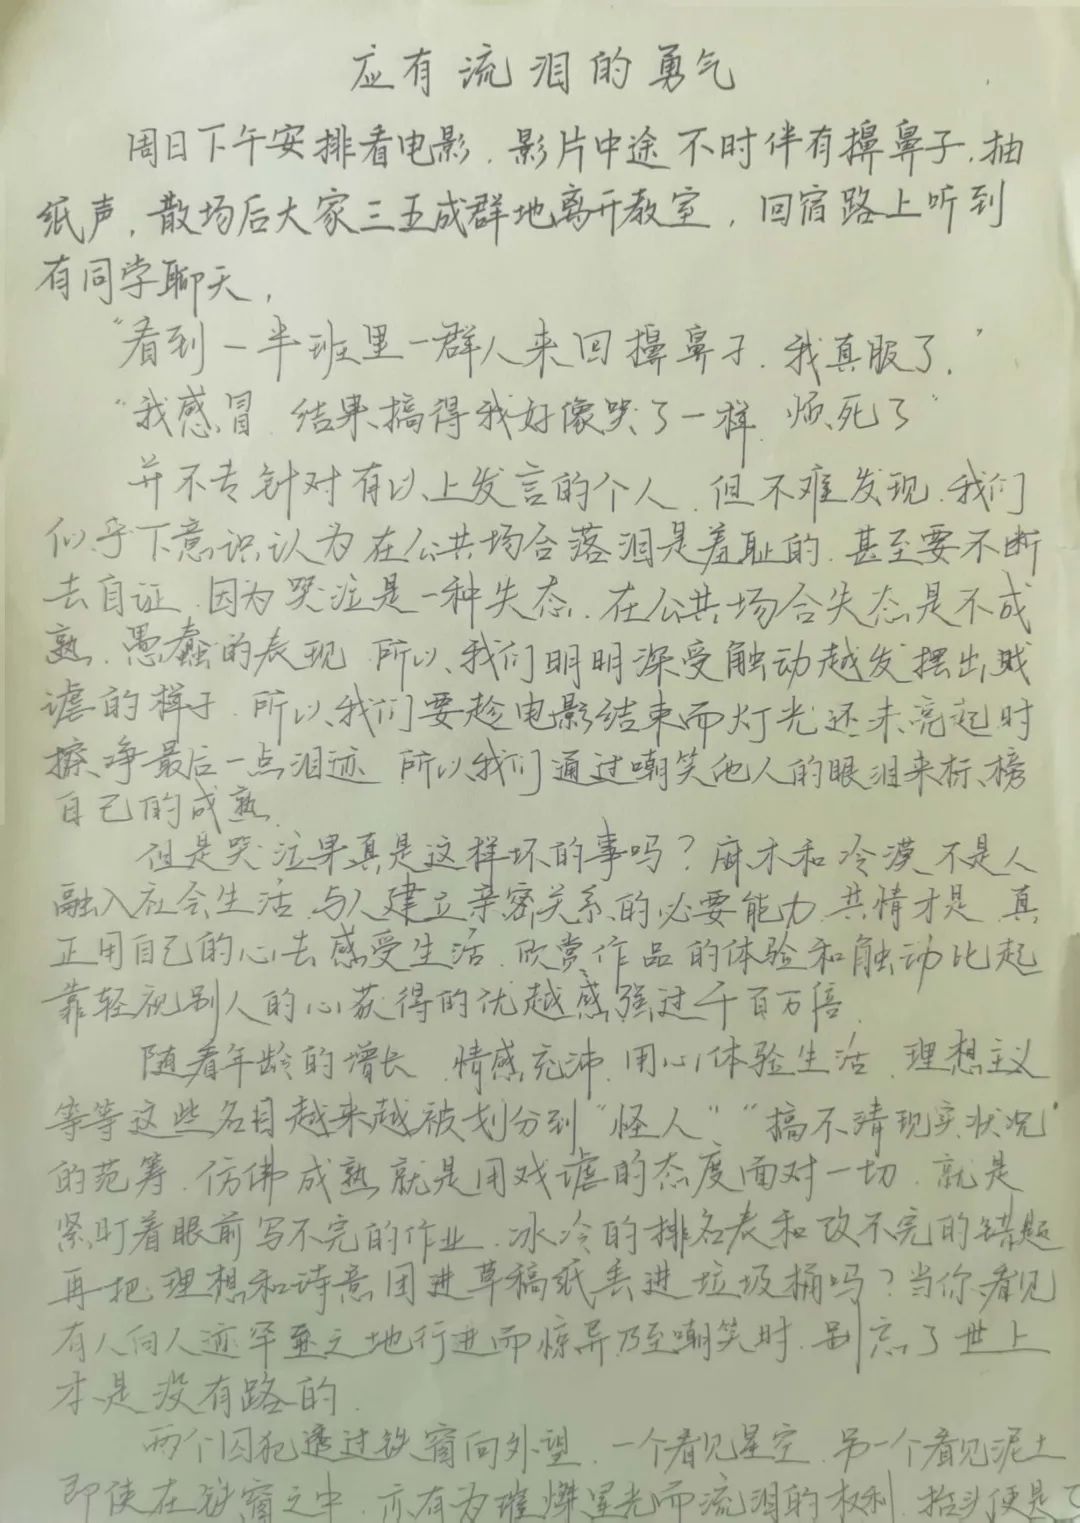 应有流泪的勇气
周日下午安排看电影.影片中途不时伴有擤鼻子.抽
纸声.散场后大家三五成群地离开教室,回宿路上听到
有同学聊天,
“看到一半班里一群人来回擤鼻子.我真服了.”
“我感冒 结果搞得我好像哭了一样 烦死了”
并不专针对有以上发言的个人 但不难发现.我们
似乎下意识认为在公共场合落泪是羞耻的.甚至要不断
去自证.因为哭泣是一种失态.在公共场合失态是不成
熟.愚蠢的表现 所以我们明明深受触动越发摆出戏
谑的样子.所以我们要趁电影结束而灯光还未亮起时
擦净最后一点泪迹 所以我们通过嘲笑他人的眼泪来标榜
自己的成熟.
但是哭泣果真是这样坏的事吗?麻木和冷漠不是人
融入社会生活.与人建立亲密关系的必要能力.共情才是 真
正用自己的心去感受生活.欣赏作品的体验和触动比起
靠轻视别人的心获得的优越感强过千百万倍.
随着年龄的增长.情感充沛.用心体验生活.理想主义
等等这些名目越来越被划分到“怪人”“搞不清现实状况”
的范筹.仿佛成熟就是用戏谑的态度面对一切.就是
紧盯着眼前写不完的作业.冰冷的排名表和改不完的错题
再把理想和诗意团进草稿纸丢进垃圾桶吗?当你看见
有人向人迹罕至之地行进而惊异乃至嘲笑时.别忘了世上
才是没有路的.
两个囚犯透过铁窗向外望.一个看见星空.另一个看见泥土
即使在铁窗之中.亦有为璀燦星光而流泪的权利.抬头便是